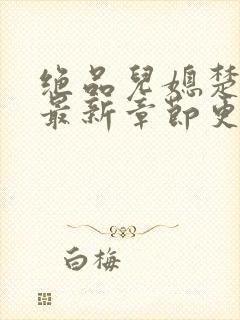 绝品儿媳楚
最新章节更
白梅